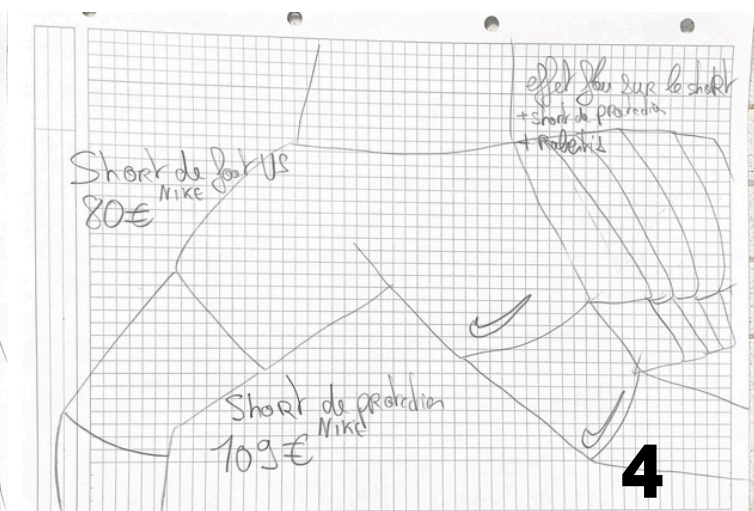 effet flou sur le short
+ short de protection
+ Ralentis
Short de foot US
NIKE
80€
Short de protection
NIKE
109€
4